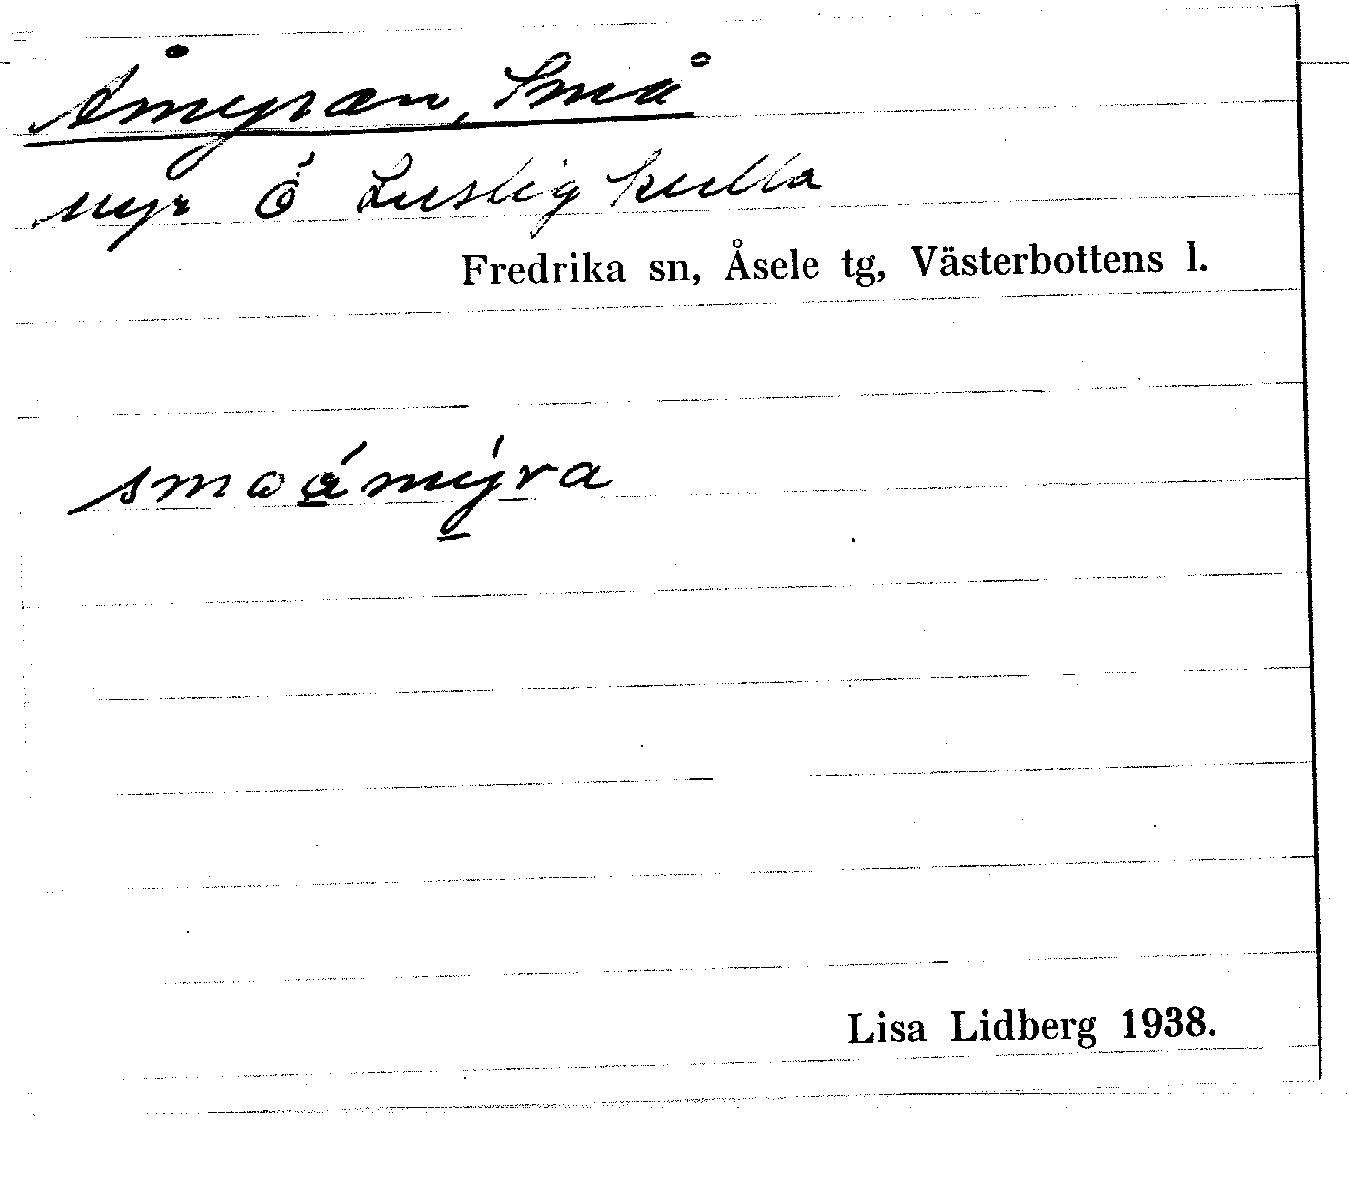 Åmyran, Små
myr Ö Lustigkulla
Fredrika sn, Åsele tg, Västerbottens l.
smɷǻmý̱ṟa
Lisa Lidberg 1938.